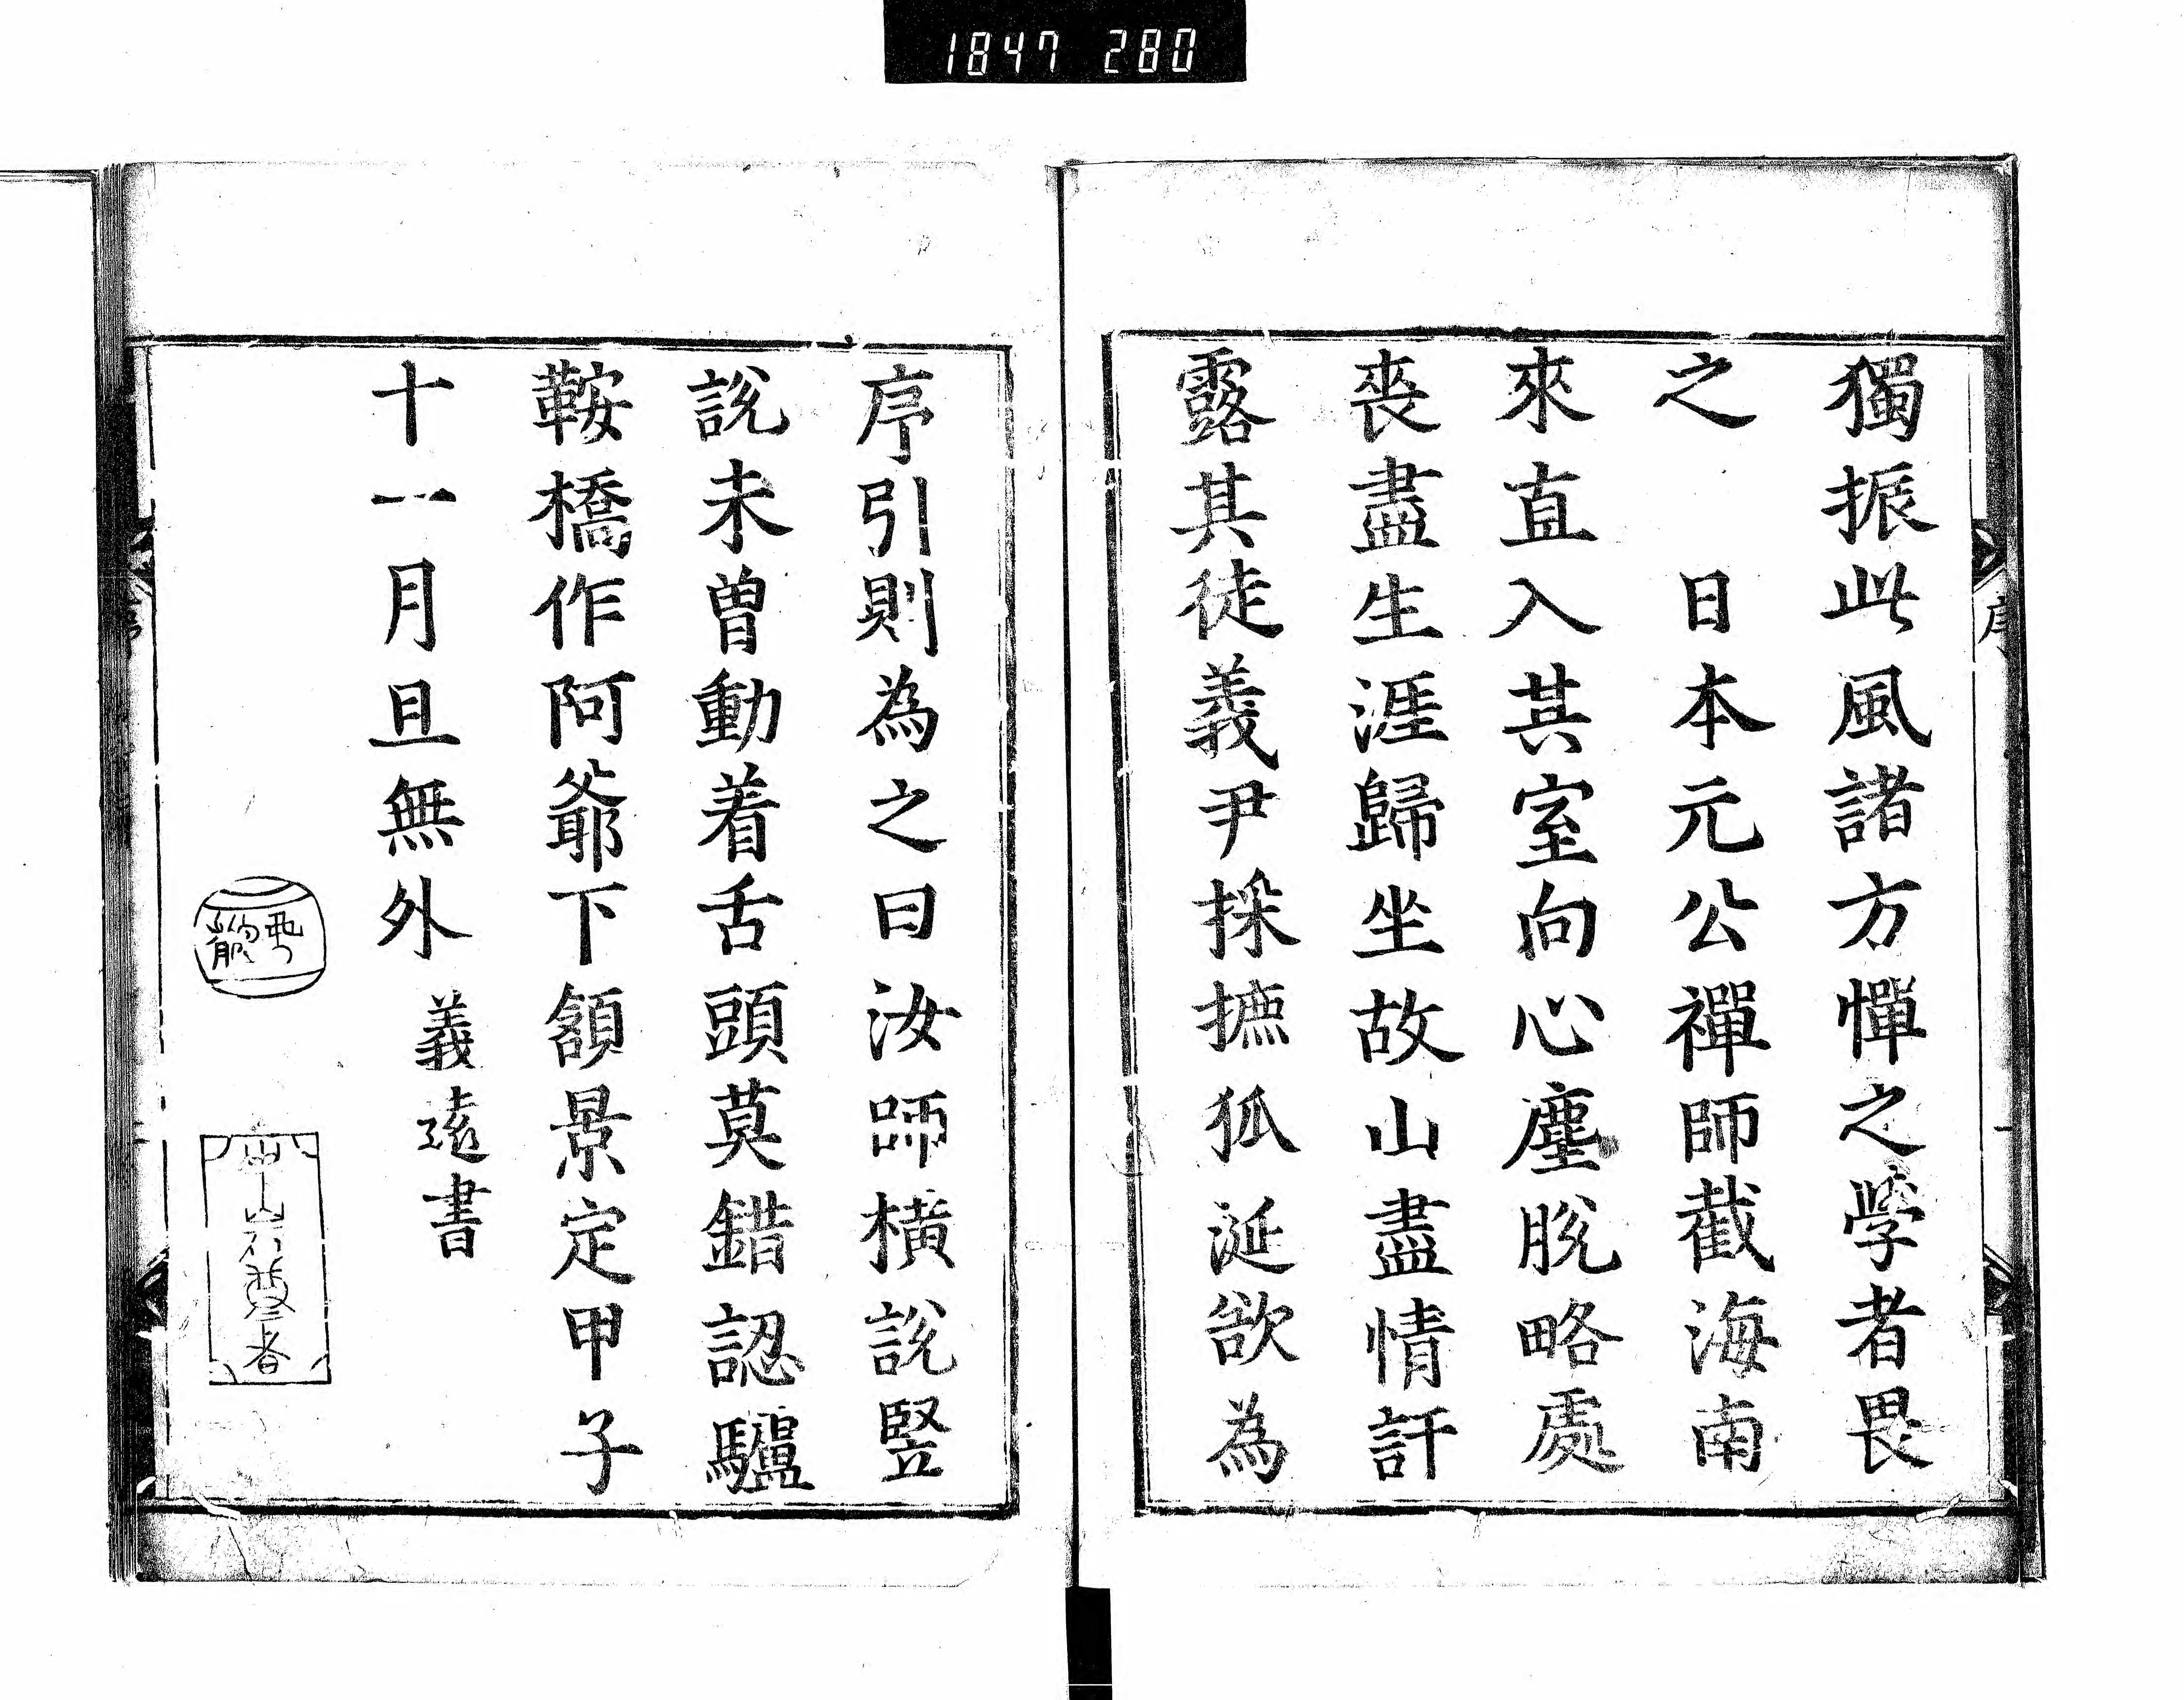 1847 280
獨振此風諸方憚之學者畏
之　日本元公禪師截海南
來直入其室向心塵脫略處
喪盡生涯歸坐故山盡情訐
露其徒義尹採摭狐涎欲為
序引則為之曰汝師橫說竪
說未曽動着舌頭莫錯認驢
鞍橋作阿爺下頷景定甲子
十一月旦無外義遠書